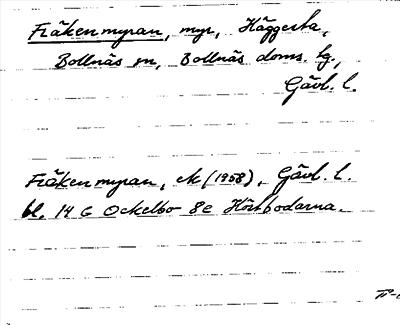 Fräkenmyran, myr, Häggesta,
Bollnäs sn, Bollnäs doms. tg.,
Gävl. l.
Fräkenmyran, ek (1958), Gävl. l.
bl. 14 G Ockelbo 8e Hörtbodarna.